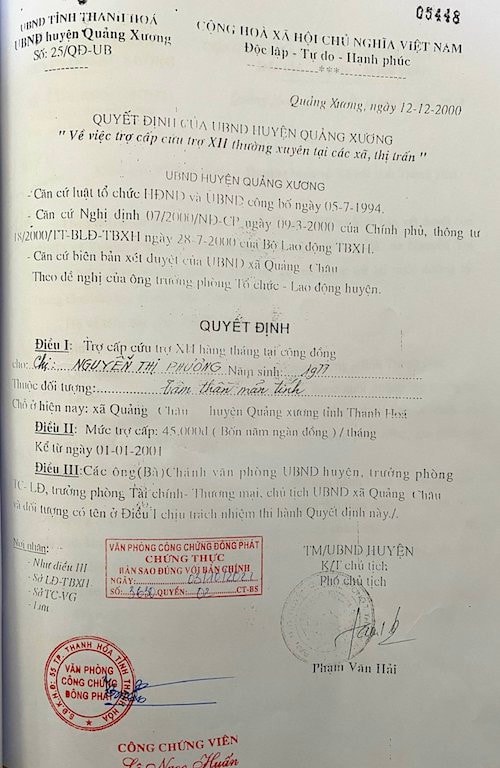 05448
UBND TỈNH THANH HOÁ
UBND huyện Quảng Xương
Số: 25/QĐ-UB
CỘNG HOÀ XÃ HỘI CHỦ NGHĨA VIỆT NAM
Độc lập - Tự do - Hạnh phúc
***
Quảng Xương, ngày 12-12-2000
QUYẾT ĐỊNH CỦA UBND HUYỆN QUẢNG XƯƠNG
" Về việc trợ cấp cứu trợ XH thường xuyên tại các xã, thị trấn "
UBND HUYỆN QUẢNG XƯƠNG
- Căn cứ luật tổ chức HĐND và UBND công bố ngày 05-7-1994.
- Căn cứ Nghị định 07/2000/NĐ-CP ngày 09-3-2000 của Chính phủ, thông tư
18/2000/TT-BLĐ-TBXH ngày 28-7-2000 của Bộ Lao động TBXH.
- Căn cứ biên bản xét duyệt của UBND xã Quảng Châu
Theo đề nghị của ông trưởng phòng Tổ chức - Lao động huyện.
QUYẾT ĐỊNH
Điều I: Trợ cấp cứu trợ XH hàng tháng tại cộng đồng
cho: Chị: NGUYỄN THỊ PHƯỜNG Năm sinh: 1977
Thuộc đối tượng: tâm thần mãn tính
Chỗ ở hiện nay: xã Quảng Châu huyện Quảng xương tỉnh Thanh Hoá
Điều II: Mức trợ cấp: 45.000đ ( Bốn năm ngàn đồng ) / tháng
Kể từ ngày 01-01-2001
Điều III: Các ông(Bà)Chánh văn phòng UBND huyện, trưởng phòng
TC- LĐ, trưởng phòng Tài chính- Thương mại, chủ tịch UBND xã Quảng Châu
và đối tượng có tên ở Điều I chịu trách nhiệm thi hành Quyết định này./.
Nơi nhân:
- Như điều III
- Sở LĐ-TBXH
- Sở TC-VG
- Lưu
VĂN PHÒNG CÔNG CHỨNG ĐÔNG PHÁT
CHỨNG THỰC
BẢN SAO ĐÚNG VỚI BẢN CHÍNH
NGÀY:
SỐ: 3650 QUYỂN: 02 CT-BS
TM/UBND HUYỆN
K/T chủ tịch
Phó chủ tịch
Phạm Văn Hải
S.Đ.K.H.Đ: 55 TP. THANH HÓA, TỈNH THANH HÓA
VĂN PHÒNG
CÔNG CHỨNG
ĐÔNG PHÁT
CÔNG CHỨNG VIÊN
Lê Ngọc Huấn